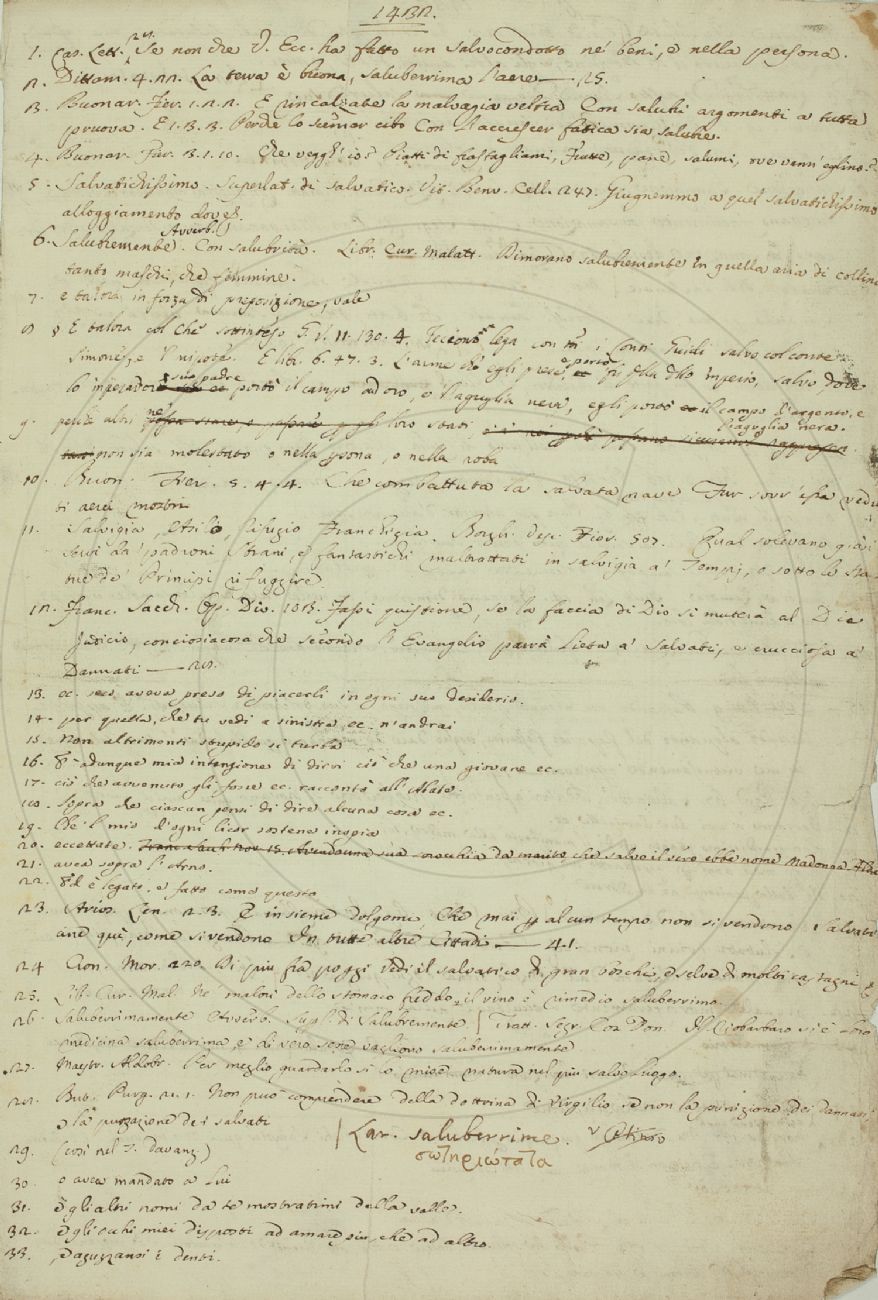 1432.
1. Cas. Lett. 28. Se non che V. Ecc. ha fatto un salvocondotto ne' beni, e nella persona.
2. Dittam. 4. 22. La terra è buona, saluberrima l'aere — 25.
3. Buonar. Fier. 1. 2. 2. E rincalzate la malvagia veltra Con salubri argomenti a tutta
pruova. E 1. 3. 3. Perde lo scemar cibo Con l'accrescer fatica sia salubre.
4. Buonar. Fier. 3. 1. 10. Che vegg'io? Piatti di frastagliami, Frutte, pane, salumi,
5. Salvatichissimo. Superlat. di salvatico. Vit. Benv. Cell. 247. Giugnemmo a quel salvatichissimo
alloggiamento dove
6. Salubremente. Avverb. Con salubrità. Libr. Cur. Malatt. Dimorano salubremente in quella aria di collina
tanto maschi, che femmine.
7. e talora in forza di preposizione, vale
8 E talora col che sottinteso G. V. 11. 130. 4. Feciono lega con i Conti Guidi salvo col conte
Simone, e 'l nipote. E libr. 6. 47. 3. L'arme che egli prese, e portò fu dello imperio, salvo dove
lo imperadore suo padre portò il campo ad oro, e l'aguglia nera, egli portò il campo d'argento, e
l'aguglia nera.
9. perchè altri ne' loro stati
non sia molestato o nella persona, o nella roba
10. Buon. Fier. 5. 4. 4. Che combattuta la salvata nave Fur sovr'essa vedu-
ti aerei mostri
11. Salvigia, Asilo, Rifugio Franchigia. Borgh. Desc. Fior. 507. Qual solevano già i
servi da' padroni strani, e fantastichi maltrattati in salvigia a' Tempj, o sotto le sta-
tue de' Principi rifuggire
12. Franc. Sacch. Op. Div. 103. Fassi quistione, se la faccia di Dio si muterà al Die
Judicio, conciosiacosa che secondo l'Evangelio parrà lieta a' salvati, e crucciosa a'
Dannati — 28.
13. ec. seco aveva preso di piacerli in ogni suo desiderio.
14. per quella, che tu vedi a sinistra ec. n'andrai
15. Non altrimenti stupido si turba
16. È adunque mia intenzione di dirvi ciò che una giovane ec.
17. ciò che avvenuto gli fosse ec. raccontò all'Abate.
18. Sopra che ciascun pensi di dire alcuna cosa ec.
19. Che 'l mio d'ogni licor sostene inopia
20. eccettate. Franc. Sacch. Nov. 15. Avendo una sua sirocchia da marito che salvo il vero ebbe nome Madonna Alda
21. avea sopra l'Arno.
22. Ed è legato, e fatto come questo
23. Arios. Len. 2. 3. E insieme dolgomi Che mai per alcun tempo non si vendono i salvati-
ane quì, come si vendono In tutte altre Cittadi — 41.
24 Cion. Mor. 220. Di più fra poggi vedi il salvatico di gran boschi, e selve di molti castagni
25. Lib. Cur. Mal. Ne' malori dello stomaco freddo il vino è rimedio saluberrimo.
26. Saluberrimamente Avverb. Superl. di Salubremente | Tratt. Segr. Cos. Don. Il Riobarbaro si è loro
medicina saluberrima, e di vero sene vagliono saluberrimamente
27. Maestr. Aldobr. Per meglio guardarlo si lo mise natura nel più salvo luogo.
28. But. Purg. 21. 1. Non può comprendere della dottrina di Virgilio se non la punizione dei dannati
e la purgazione dei salvati
| Lat. saluberrime.
σωτηριώτατα
29. (così nel T. Davanz.)
30. e avea mandato a lui
31. E gli altri nomi da te mostratimi della valle.
32. E gli occhi miei disposti ad amare siu, che ad altro.
33. E aguzzansi i denti.